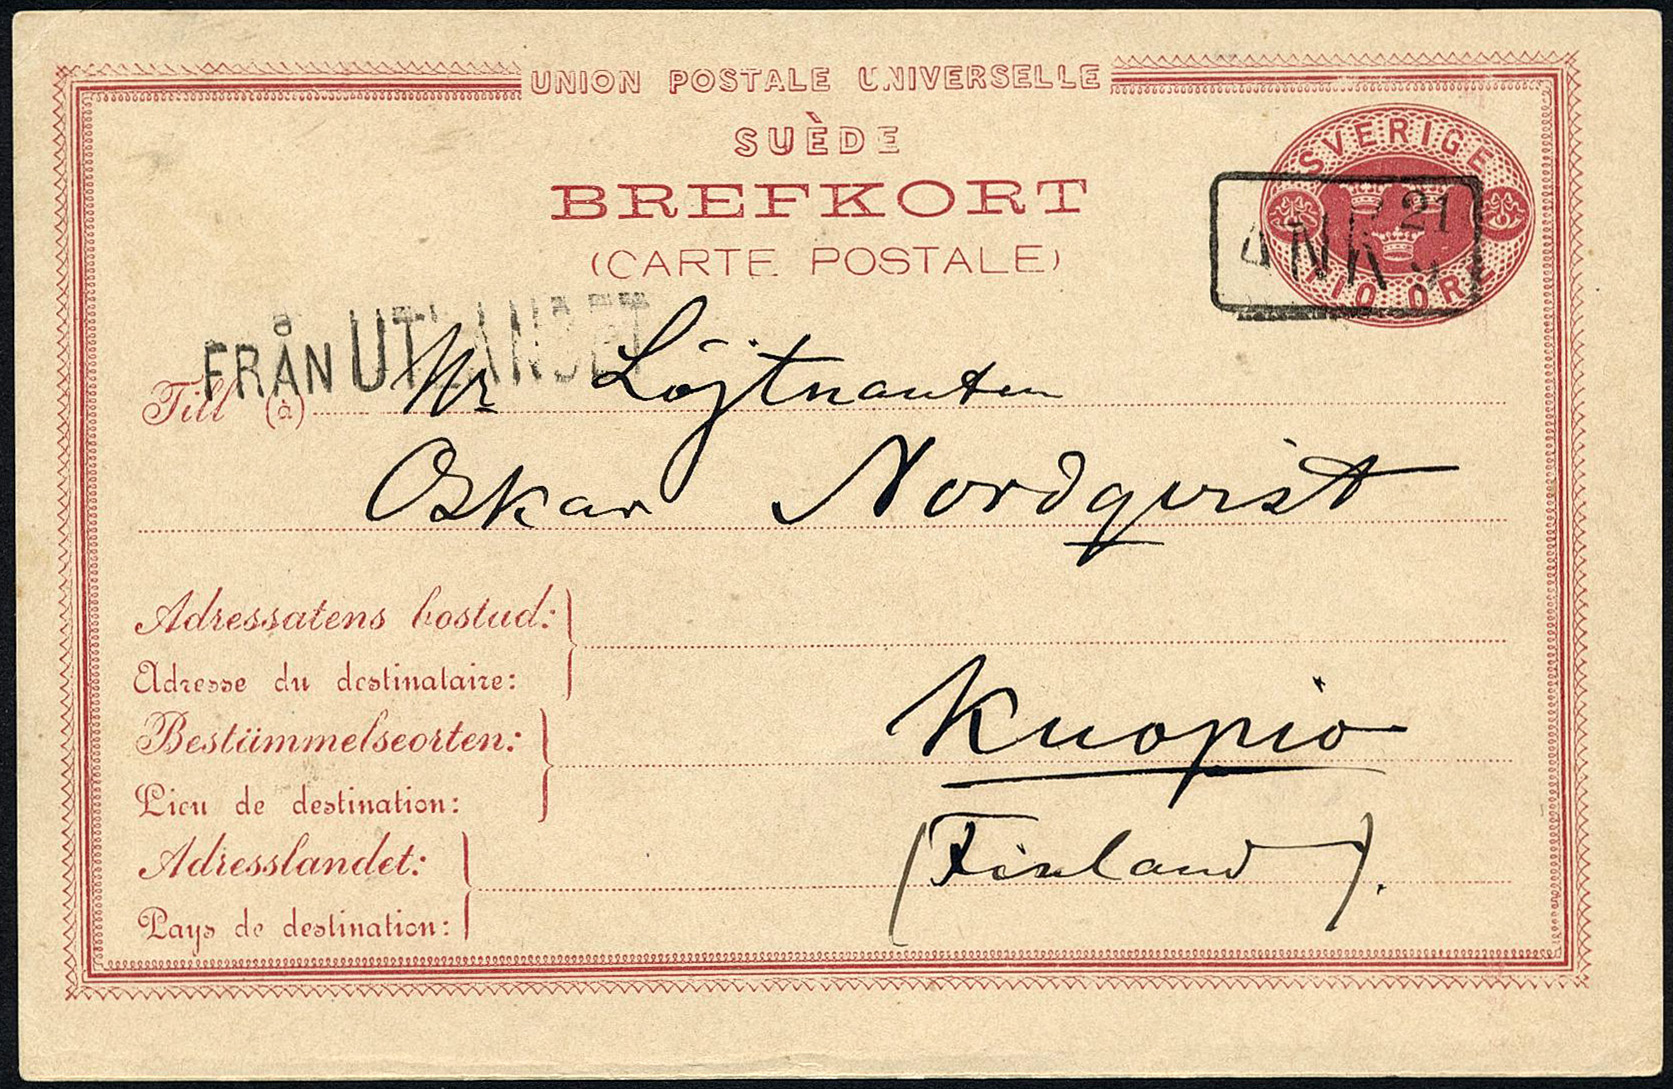 UNION POSTALE UNIVERSELLE
SUÈDE
BREFKORT
(CARTE POSTALE)
SVERIGE
TIO ÖRE
ANK 21
FRÅN UTLANDET
Till (à) Mr Löjtnanten
Oskar Nordqvist
Adressatens bostad:
Adresse du destinataire:
Bestämmelseorten:
Lieu de destination:
Kuopio
Adresslandet:
Pays de destination:
(Finland).